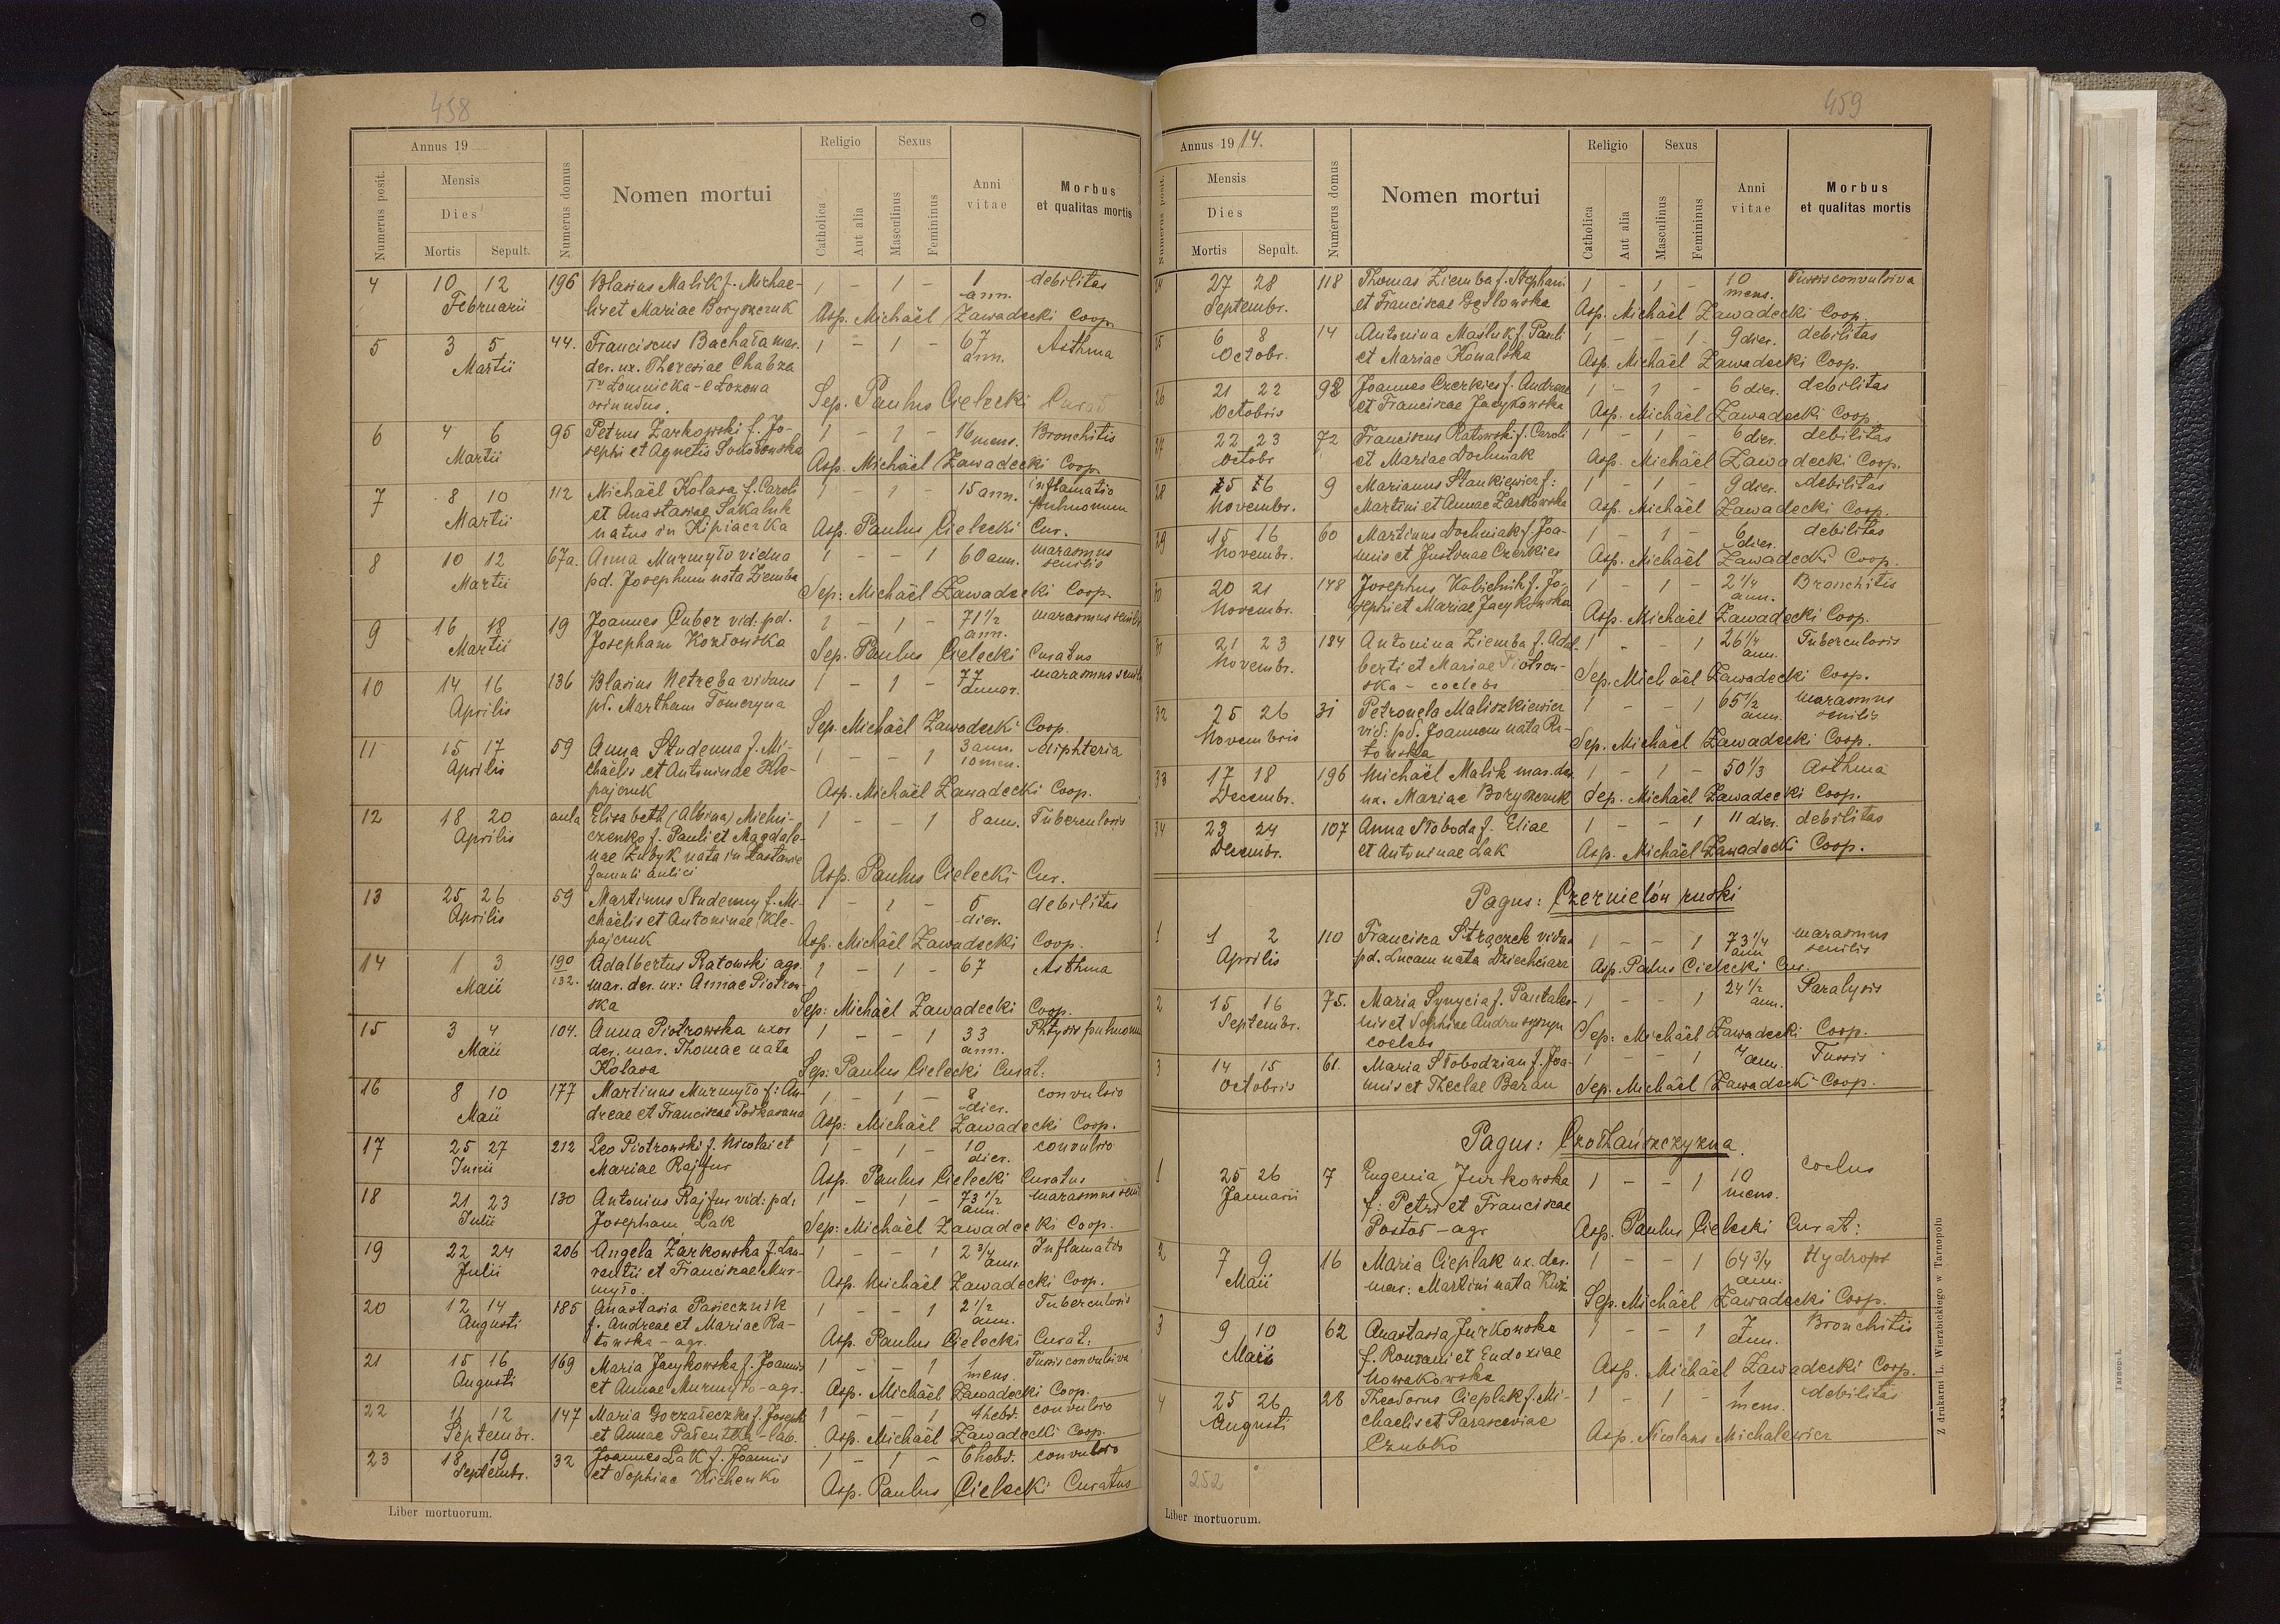 458
Annus 19
Numerus posit.
Mensis
Dies
Mortis Sepult.
Numerus domus
Nomen mortui
Religio
Catholica
Aut alia
Sexus
Masculinus
Femininus
Anni vitae
Morbus et qualitas mortis
4 10 12 196 Blasius Malik f. Michae- 1 - 1 - 1 debilitas
Februarii lis et Mariae Boryszczuk ann.
Asp. Michäel Zawadecki Coop.
5 3 5 44. Franciscus Bachała mar. 1 - 1 - 67 Asthma
Martii der. ux. Theresiae Chabza ann.
Łomnicka - e Łozowa
oriundus. Sep. Paulus Cielecki Curat
6 4 6 95 Petrus Żarkowski f. Jo- 1 - 1 - 16 mens. Bronchitis
Martii sephi et Agnetis Sokołowska
Asp. Michäel Zawadecki Coop.
7 8 10 112 Michäel Kolasa f. Caroli 1 - 1 - 15 ann. inflamatio
Martii et Anastasiae Sakaluk pulmonum
natus in Kipiaczka Asp. Paulus Cielecki Cur.
8 10 12 67a. Anna Murmyło vidua 1 - - 1 60 ann. marasmus
Martii pd. Josephum nata Ziemba senilis
Sep: Michäel Zawadecki Coop.
9 16 18 19 Joannes Cuber vid. pd. 1 - 1 - 71 1/2 marasmus senilis
Martii Josepham Kozłowska ann.
Sep. Paulus Cielecki Curatus
10 14 16 136 Blasius Netreba viduus 1 - 1 - 77 marasmus senilis
Aprilis pd. Martham Tomczyna annor.
Sep. Michäel Zawadecki Coop.
11 15 17 59 Anna Studenna f. Mi- 1 - - 1 3 ann. Diphteria
Aprilis chäelis et Antoninae Kle- 10 men.
pajczuk Asp. Michäel Zawadecki Coop.
12 18 20 aula Elisabeth (Albina) Michni- 1 - - 1 8 ann. Tuberculosis
Aprilis czenko f. Pauli et Magdale-
nae Zubyk nata in Hastawie
famuli aulici Asp. Paulus Cielecki Cur.
13 25 26 59 Martinus Studenny f. Mi- 1 - 1 - 5 debilitas
Aprilis chäelis et Antoninae Kle- dier.
pajczuk Asp. Michäel Zawadecki Coop.
14 1 3 190/132. Adalbertus Ratowski agr. 1 - 1 - 67 Asthma
Maii mar. der. ux: Annae Piotrow-
ska Sep: Michäel Zawadecki Coop.
15 3 4 104. Anna Piotrowska uxor 1 - - 1 33 Phtysis pulmonum
Maii der. mar. Thomae nata ann.
Kolasa Sep: Paulus Cielecki Curat.
16 8 10 177 Martinus Murmyło f: An- 1 - 1 - 8 convulsio
Maii dreae et Franciscae Podkasana dier.
Asp: Michäel Zawadecki Coop.
17 25 27 212 Leo Piotrowski f. Nicolai et 1 - 1 - 10 convulsio
Junii Mariae Rajfur dier.
Asp. Paulus Cielecki Curatus
18 21 23 130 Antonius Rajfur vid: pd. 1 - 1 - 73 1/2 marasmus seni
Julii Josepham Łak ann.
Sep: Michäel Zawadecki Coop.
19 22 24 206 Angela Żarkowska f. Lau- 1 - - 1 2 3/4 Inflamatio
Julii rentii et Franciscae Mur- ann.
myło. Asp. Michäel Zawadecki Coop.
20 12 14 185 Anastasia Pasiecznik 1 - - 1 2 1/2 Tuberculosis
Augusti f. Andreae et Mariae Ra- ann.
towska - agr. Asp. Paulus Cielecki Curat:
21 15 16 169 Maria Jacykowska f. Joannis 1 - - 1 1 Tussis convulsiva
Augusti et Annae Murmyło - agr. mens.
Asp. Michäel Zawadecki Coop.
22 11 12 147 Maria Gorzałeczko f. Josephi 1 - - 1 4 hebd. convulsio
Septembr. et Annae Pałentka - lab.
Asp. Michäel Zawadecki Coop.
23 18 19 32 Joannes Łak f. Joannis 1 - 1 - 6 hebd. convulsio
Septembr. et Sophiae Kichenko
Asp. Paulus Cielecki Curatus
Liber mortuorum.
459
Annus 1914.
Numerus posit.
Mensis
Dies
Mortis Sepult.
Numerus domus
Nomen mortui
Religio
Catholica
Aut alia
Sexus
Masculinus
Femininus
Anni vitae
Morbus et qualitas mortis
27 28 118 Thomas Ziemba f. Stephani 1 - 1 - 10 Tussis convulsiva
Septembr. et Franciscae mens.
Asp. Michäel Zawadecki Coop.
25 6 8 14 Antonina Maśluk f. Pauli 1 - - 1 9 dier. debilitas
Octobr. et Mariae Kowalska
Asp. Michäel Zawadecki Coop.
26 21 22 98 Joannes Czerkies f. Andreae 1 - 1 - 6 dier. debilitas
Octobris et Franciscae Jacykowska
Asp. Michäel Zawadecki Coop.
27 22 23 72 Franciscus Ratowski f. Caroli 1 - 1 - 6 dier. debilitas
Octobr et Mariae Dochniak
Asp. Michäel Zawadecki Coop.
28 15 16 9 Marianus Stankiewicz f: 1 - 1 - 9 dier. debilitas
Novembr. Martini et Annae Żarkowska
Asp. Michäel Zawadecki Coop.
29 15 16 60 Martinus Dochniak f. Joa- 1 - 1 - 6 debilitas
Novembr. nnis et Justinae Czerkies dier.
Asp. Michäel Zawadecki Coop.
30 20 21 148 Josephus Kobielnik f. Jo- 1 - 1 - 2 1/4 Bronchitis
Novembr. sephi et Mariae Jacykowska ann.
Asp. Michäel Zawadecki Coop.
31 21 23 184 Antonina Ziemba f. Adal- 1 - - 1 26 1/4 Tuberculosis
Novembr. berti et Mariae Piotrow- ann.
ska - coelebs Sep. Michäel Zawadecki Coop.
32 25 26 31 Petronela Maliszkiewicz 1 - - 1 65 1/2 marasmus
Novembris vid: pd. Joannem nata Ra- ann. senilis
towska Sep. Michäel Zawadecki Coop.
33 17 18 196 Michäel Malik mar. der. 1 - 1 - 50 1/3 Asthma
Decembr. ux. Mariae Boryszczuk Sep. Michäel Zawadecki Coop.
34 23 24 107 Anna Słoboda f. Eliae 1 - - 1 11 dier. debilitas
Decembr. et Antoninae Łak Asp. Michäel Zawadecki Coop.
Pagus: Czernielów ruski
1 1 2 110 Francisca Strączek vidua 1 - - 1 73 1/4 marasmus
Aprilis pd. Lucam nata Dziechciara ann senilis
Asp. Paulus Cielecki Cur.
2 15 16 75. Maria Synycia f. Pantaleo- 1 - - 1 24 1/2 Paralysis
Septembr. nis et Sophiae Andruszyszyn ann.
coelebs Sep: Michäel Zawadecki Coop.
3 14 15 61. Maria Słobodzian f. Joa- 1 - - 1 7 ann. Tussis
Octobris nnis et Theclae Baran Sep. Michäel Zawadecki Coop.
Pagus: Czołhańszczyzna
1 25 26 7 Eugenia Jurkowska 1 - - 1 10 coelus
Januarii f: Petri et Franciscae mens.
Postoł - agr Asp. Paulus Cielecki Curat:
2 7 9 16 Maria Cieplak ux. der. 1 - - 1 64 3/4 Hydrops
Maii mar: Martini nata Kuź ann.
Sep. Michäel Zawadecki Coop.
3 9 10 62 Anastasia Jurkowska 1 - - 1 7 Bronchitis
Maii f. Romani et Eudoxiae ann.
Nowakowska Asp. Michäel Zawadecki Coop.
4 25 26 28 Theodorus Cieplak f. Mi- 1 - 1 - 1 debilitas
Augusti chaelis et Parasceviae mens.
Czubko Asp. Nicolaus Michalewicz
252
Liber mortuorum.
Z drukarni L. Wierzbickiego w Tarnopolu